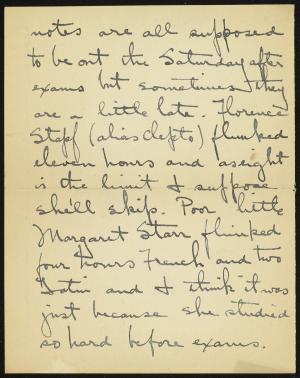 notes are all supposed
to be out the Saturday after
exams but sometimes they
are a little late. Florence
Stapf (alias clepto) flunked
eleven hours and as eight
is the limit I suppose
she'll skip. Poor little
Margaret Starr flunked
four hours French and two
Latin and I think it was
just because she studied
so hard before exams.